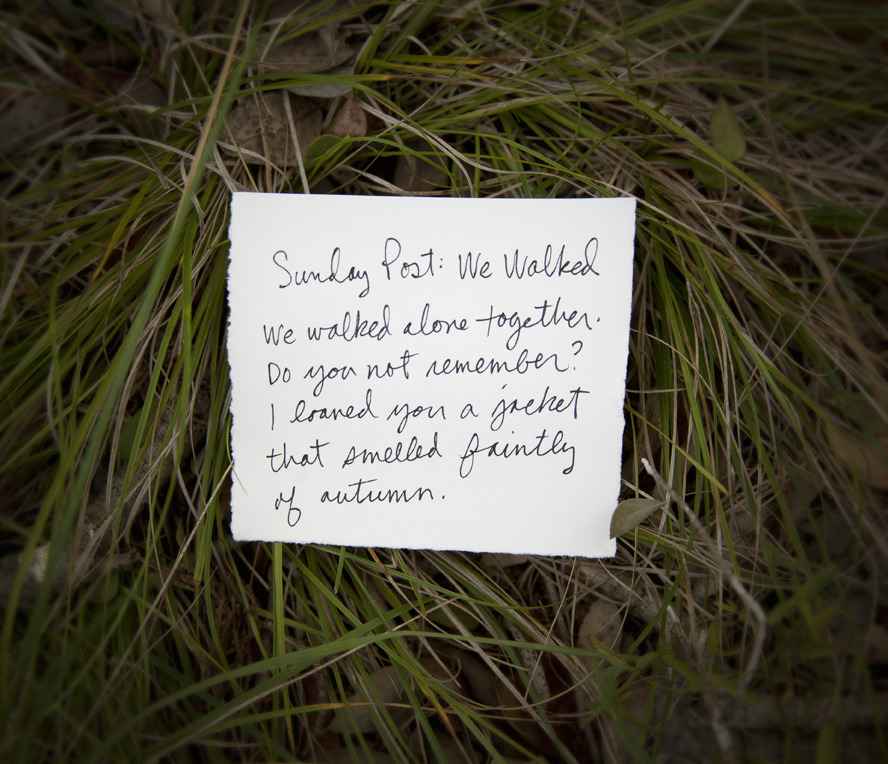 Sunday Post: We Walked
We walked alone together.
Do you not remember?
I loaned you a jacket
that smelled faintly
of autumn.